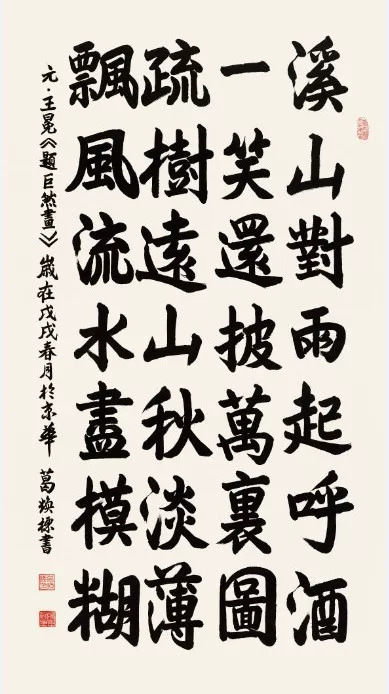 溪山對雨起呼酒
一笑還披萬裏圖
疏樹遠山秋淡薄
飄風流水盡模糊
元·王冕《題巨然畫》歲在戊戌春月於京華 葛煥標書